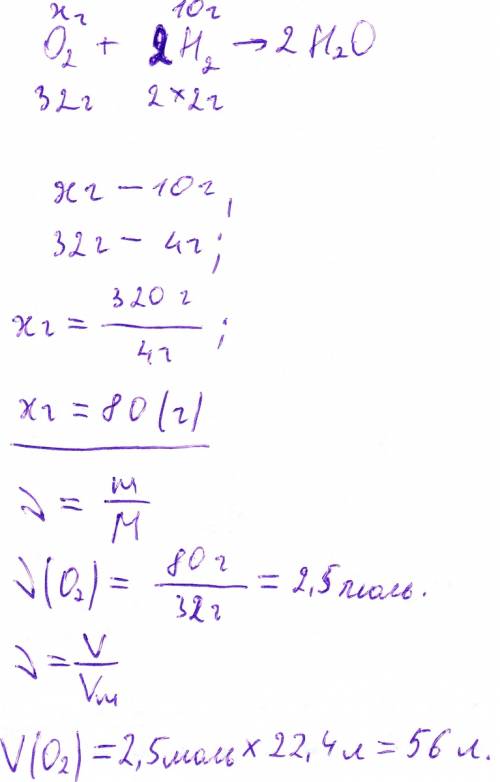 хг 10г
O₂ + 2H₂ → 2H₂O
32г 2×2г
хг — 10г,
32г — 4г;
хг = 320 г / 4г ;
хг = 80 (г)
ν = m / M
ν(O₂) = 80 г / 32 г = 2,5 моль.
ν = V / Vм
V(O₂) = 2,5 моль × 22,4 л = 56 л.